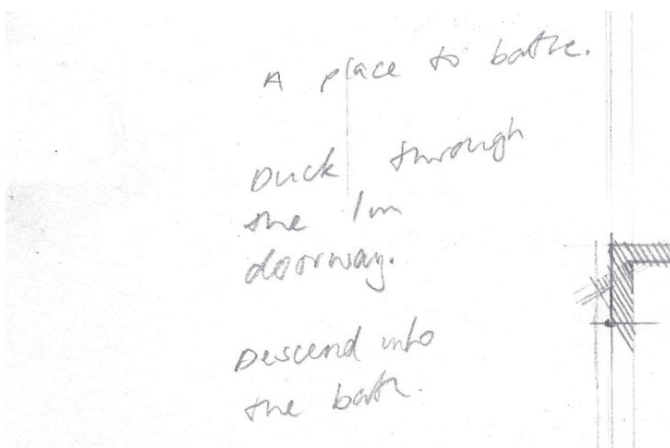 A place to bathe.
Duck through
the 1m
doorway.
Descend into
the bath.